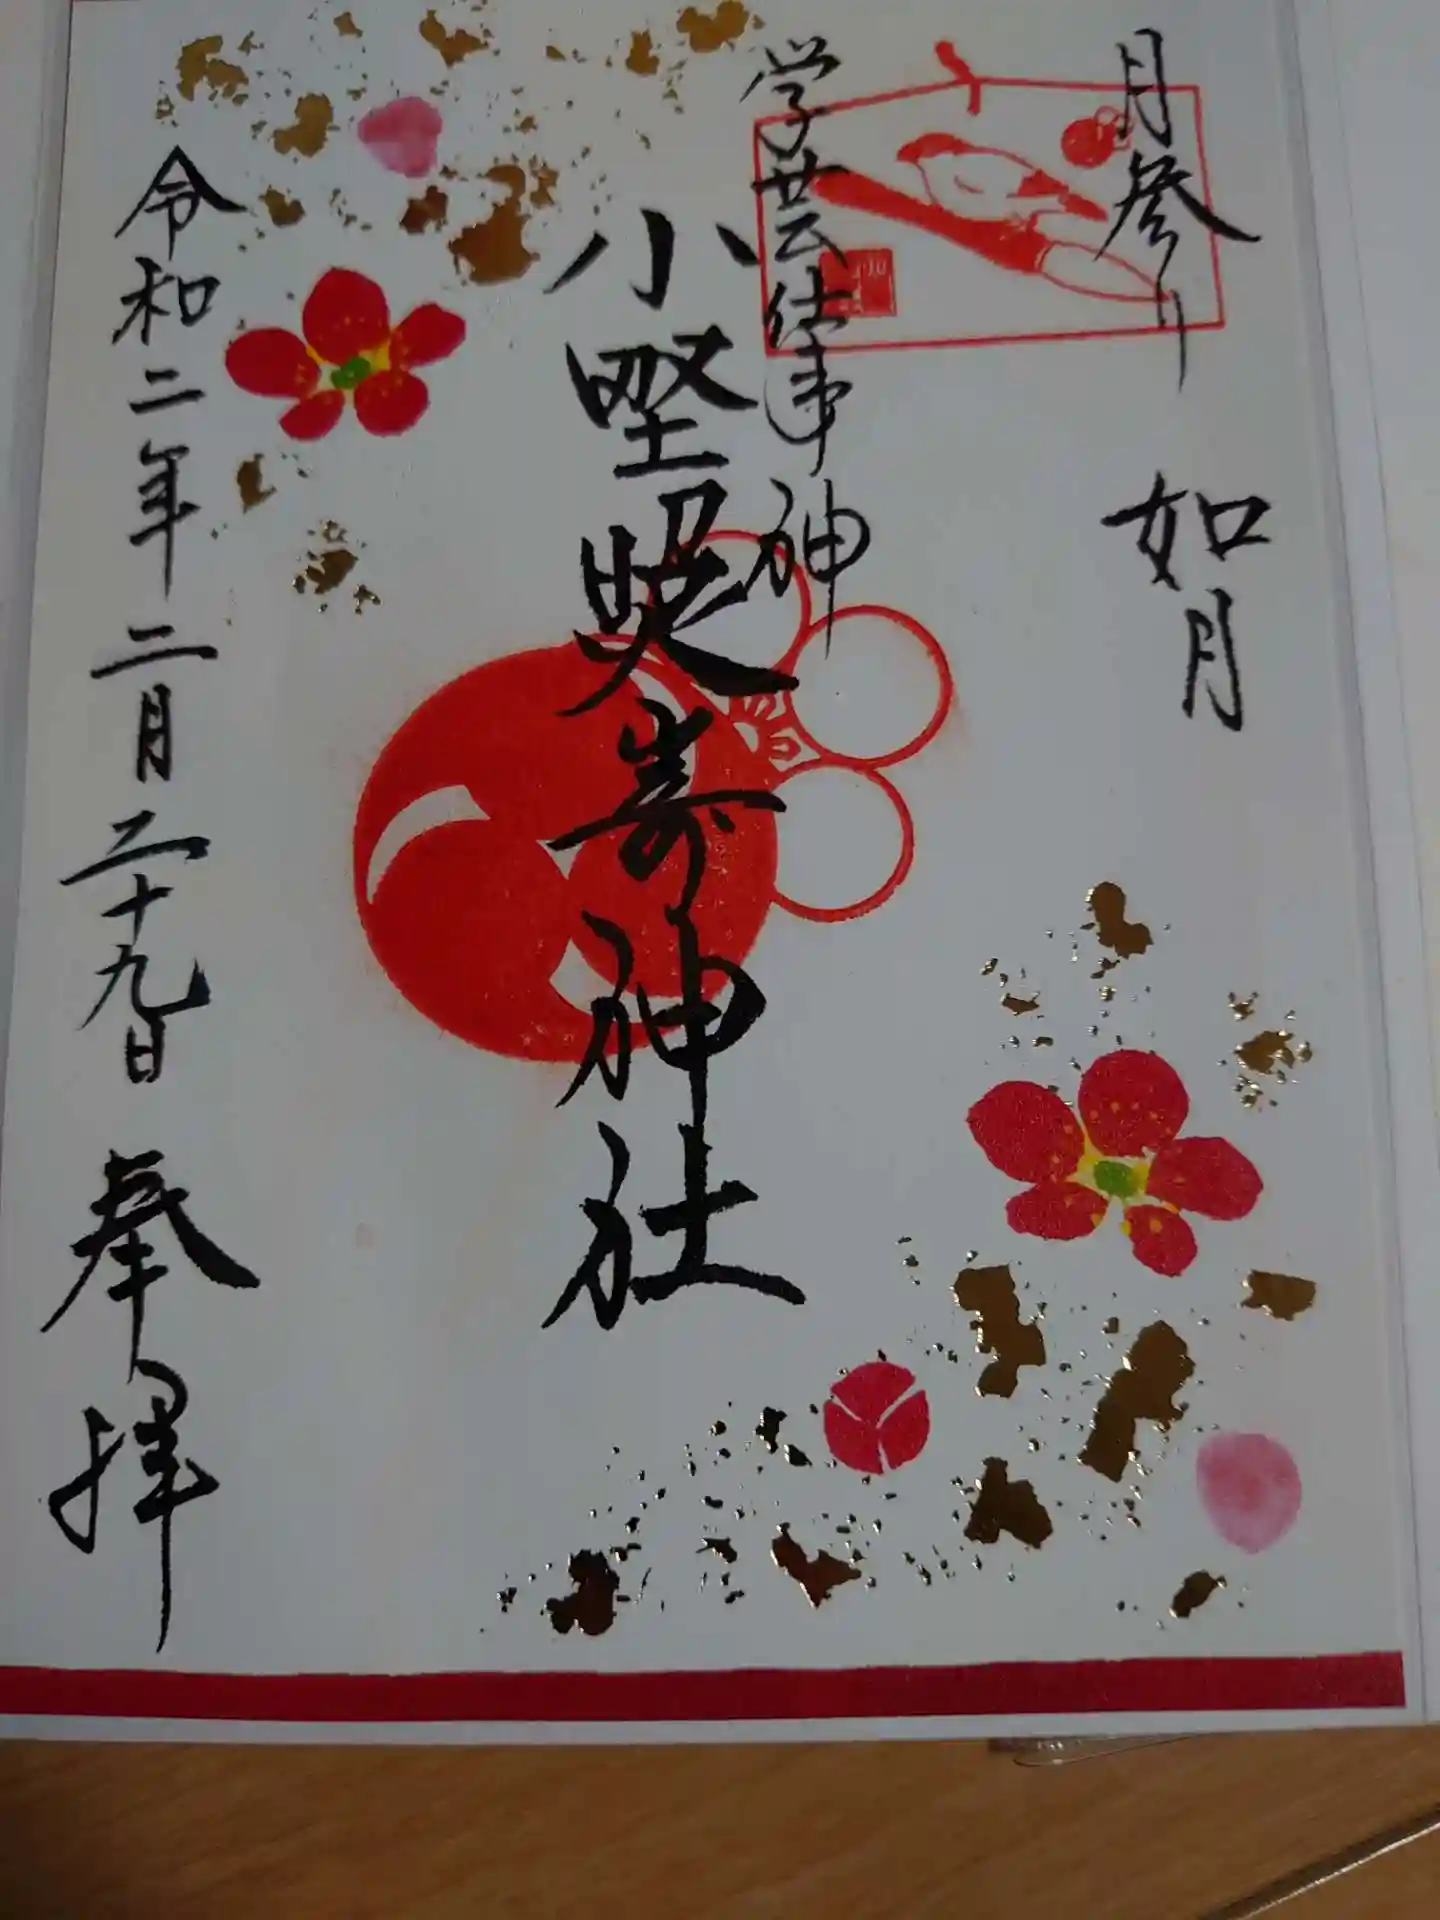 月参り 如月
学芸仕事神
小野照嵜神社
令和二年二月二十九日 奉拝